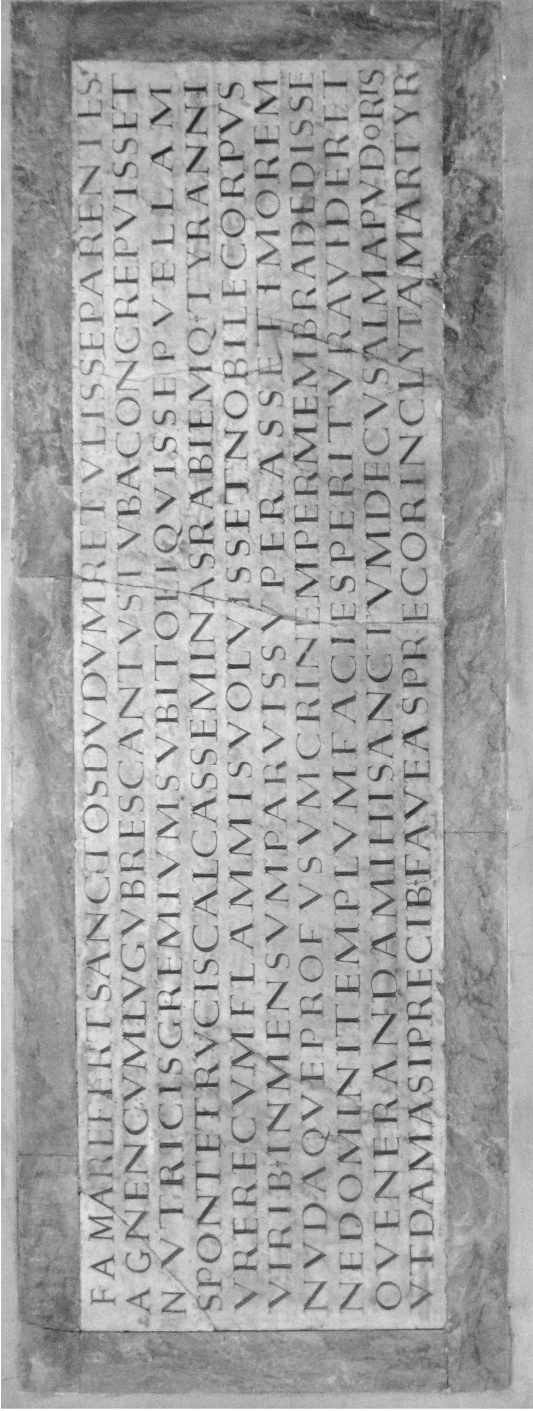 FAMAREFERTSANCTOSDVDVMRETVLISSEPARENTES
AGNENCVMLVGVBRESCANTVSTVBACONCREPVISSET
NVTRICISGREMIVMSVBITOLIQVISSEPVELLAM
SPONTETRVCISCALCASSEMINASRABIEMQ·TYRANNI
VRERECVMFLAMMISVOLVISSETNOBILECORPVS
VIRIB·INMENSVMPARVISSVPERASSETIMOREM
NVDAQVEPROFVSVMCRINEMPERMEMBRADEDISSE
NEDOMINITEMPLVMFACIESPERITVRAVIDERET
OVENERANDAMIHISANCTVMDECVSALMAPVDORIS
VTDAMASIPRECIB·FAVEASPRECORINCLYTAMARTYR